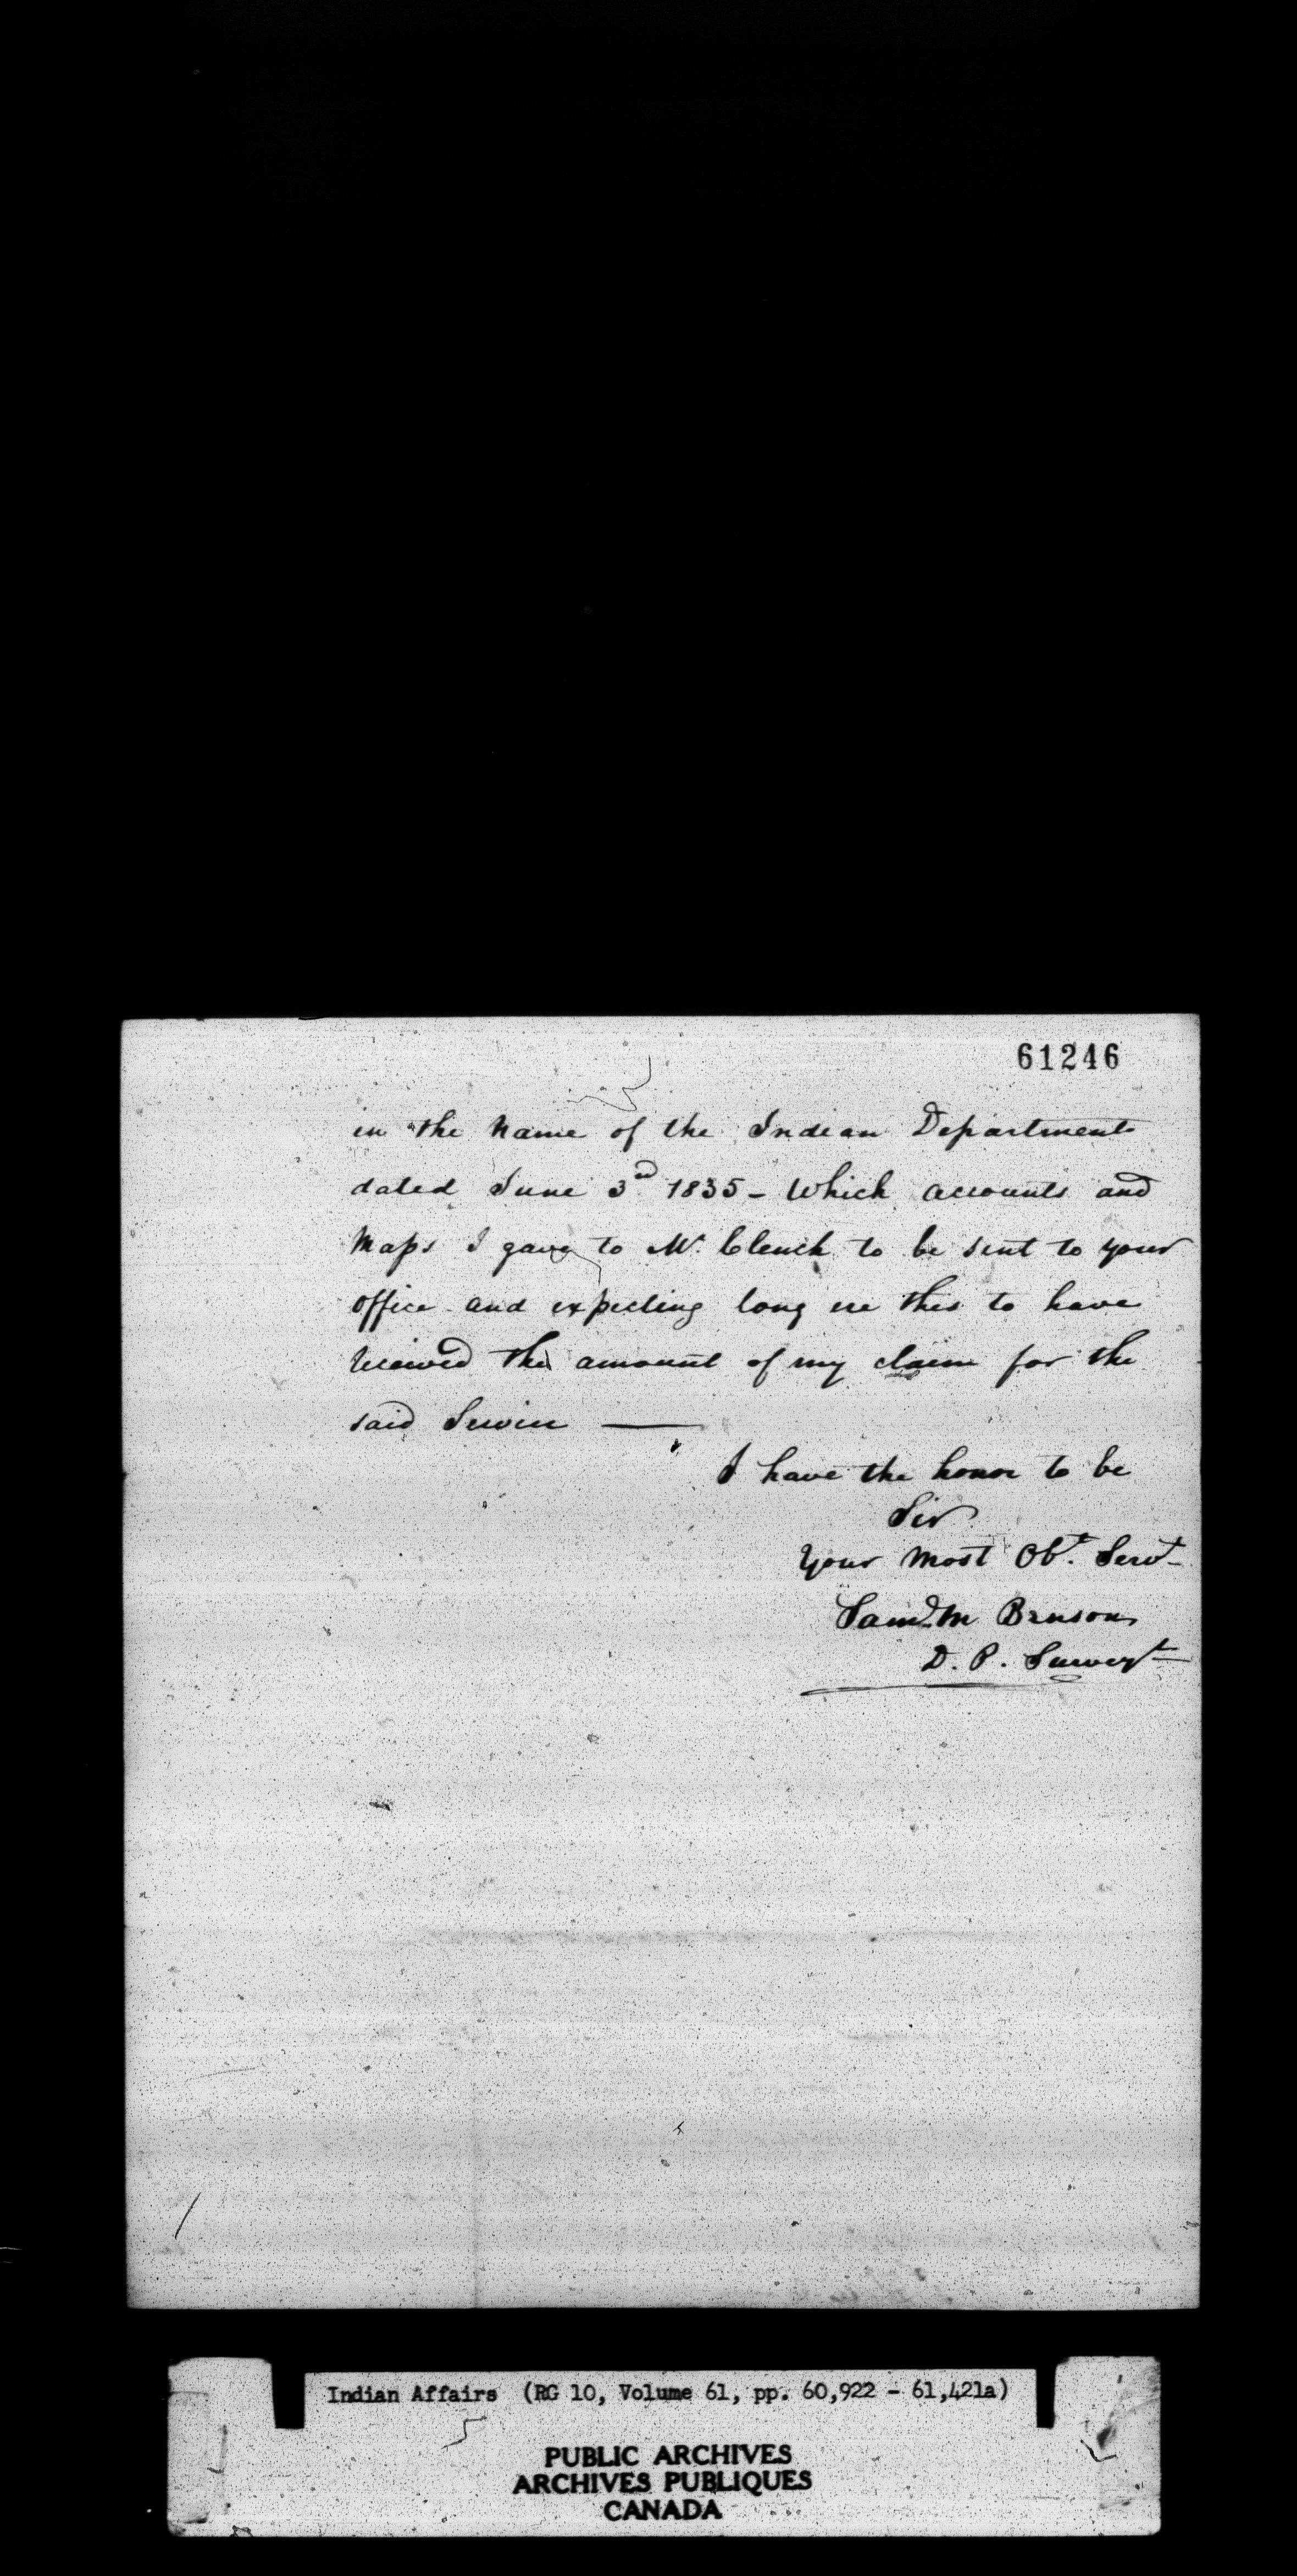 61246
in the Name of the Indian Department
dated June 3rd 1835 - Which accounts and
Maps I gave to Mr. Clench to be sent to your
office and expecting long ere this to have
received the amount of my claim for the
said Service ———
I have the honor to be
Sir
Your Most Obt. Servt
Saml. M Benson
D. P. Surveyr
Indian Affairs (RG 10, Volume 61, pp. 60,922 - 61,421a)
PUBLIC ARCHIVES
ARCHIVES PUBLIQUES
CANADA